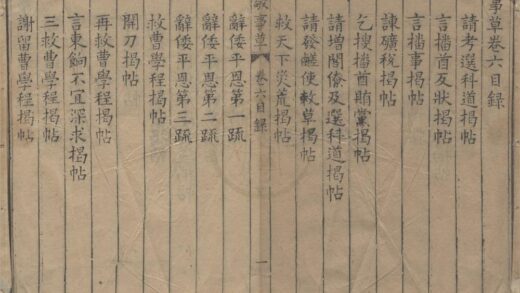 事草卷六目録
請考選科道揭帖
言播酋反狀揭帖
言播事揭帖
諫礦稅揭帖
乞搜播酋賄黨揭帖
請增閣僚及選科道揭帖
請發鹺使敕草揭帖
救天下災荒揭帖
敬事草 卷六目録 一
辭倭平恩第一疏
辭倭平恩第二疏
辭倭平恩第三疏
救曹學程揭帖
開刀揭帖
再救曹學程揭帖
言東餉不宜深求揭帖
三救曹學程揭帖
謝留曹學程揭帖